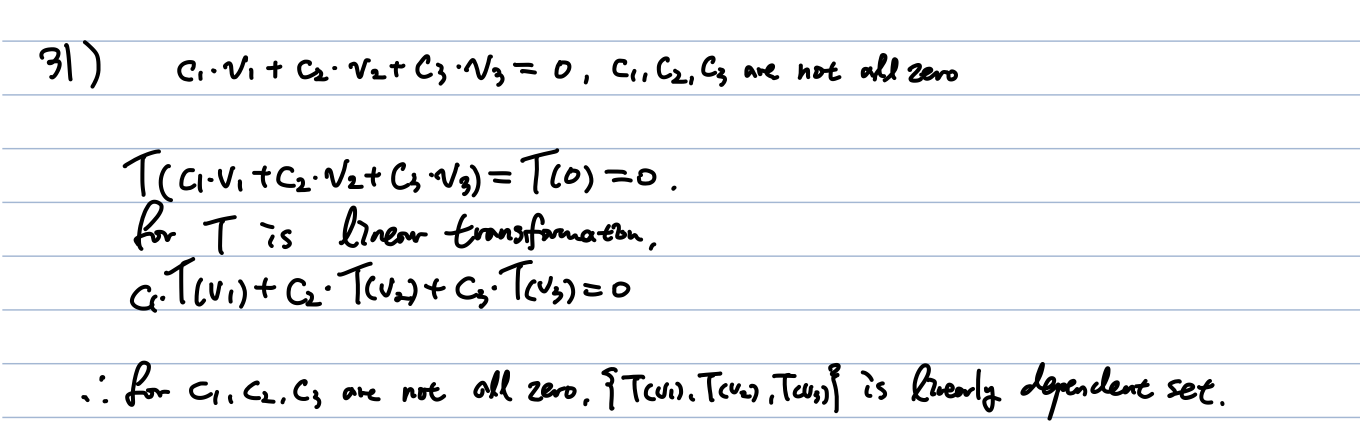 31) c₁·v₁ + c₂·v₂ + c₃·v₃ = 0, c₁, c₂, c₃ are not all zero
T(c₁·v₁ + c₂·v₂ + c₃·v₃) = T(0) = 0.
for T is linear transformation,
c₁·T(v₁) + c₂·T(v₂) + c₃·T(v₃) = 0
∴ for c₁, c₂, c₃ are not all zero, {T(v₁), T(v₂), T(v₃)} is linearly dependent set.